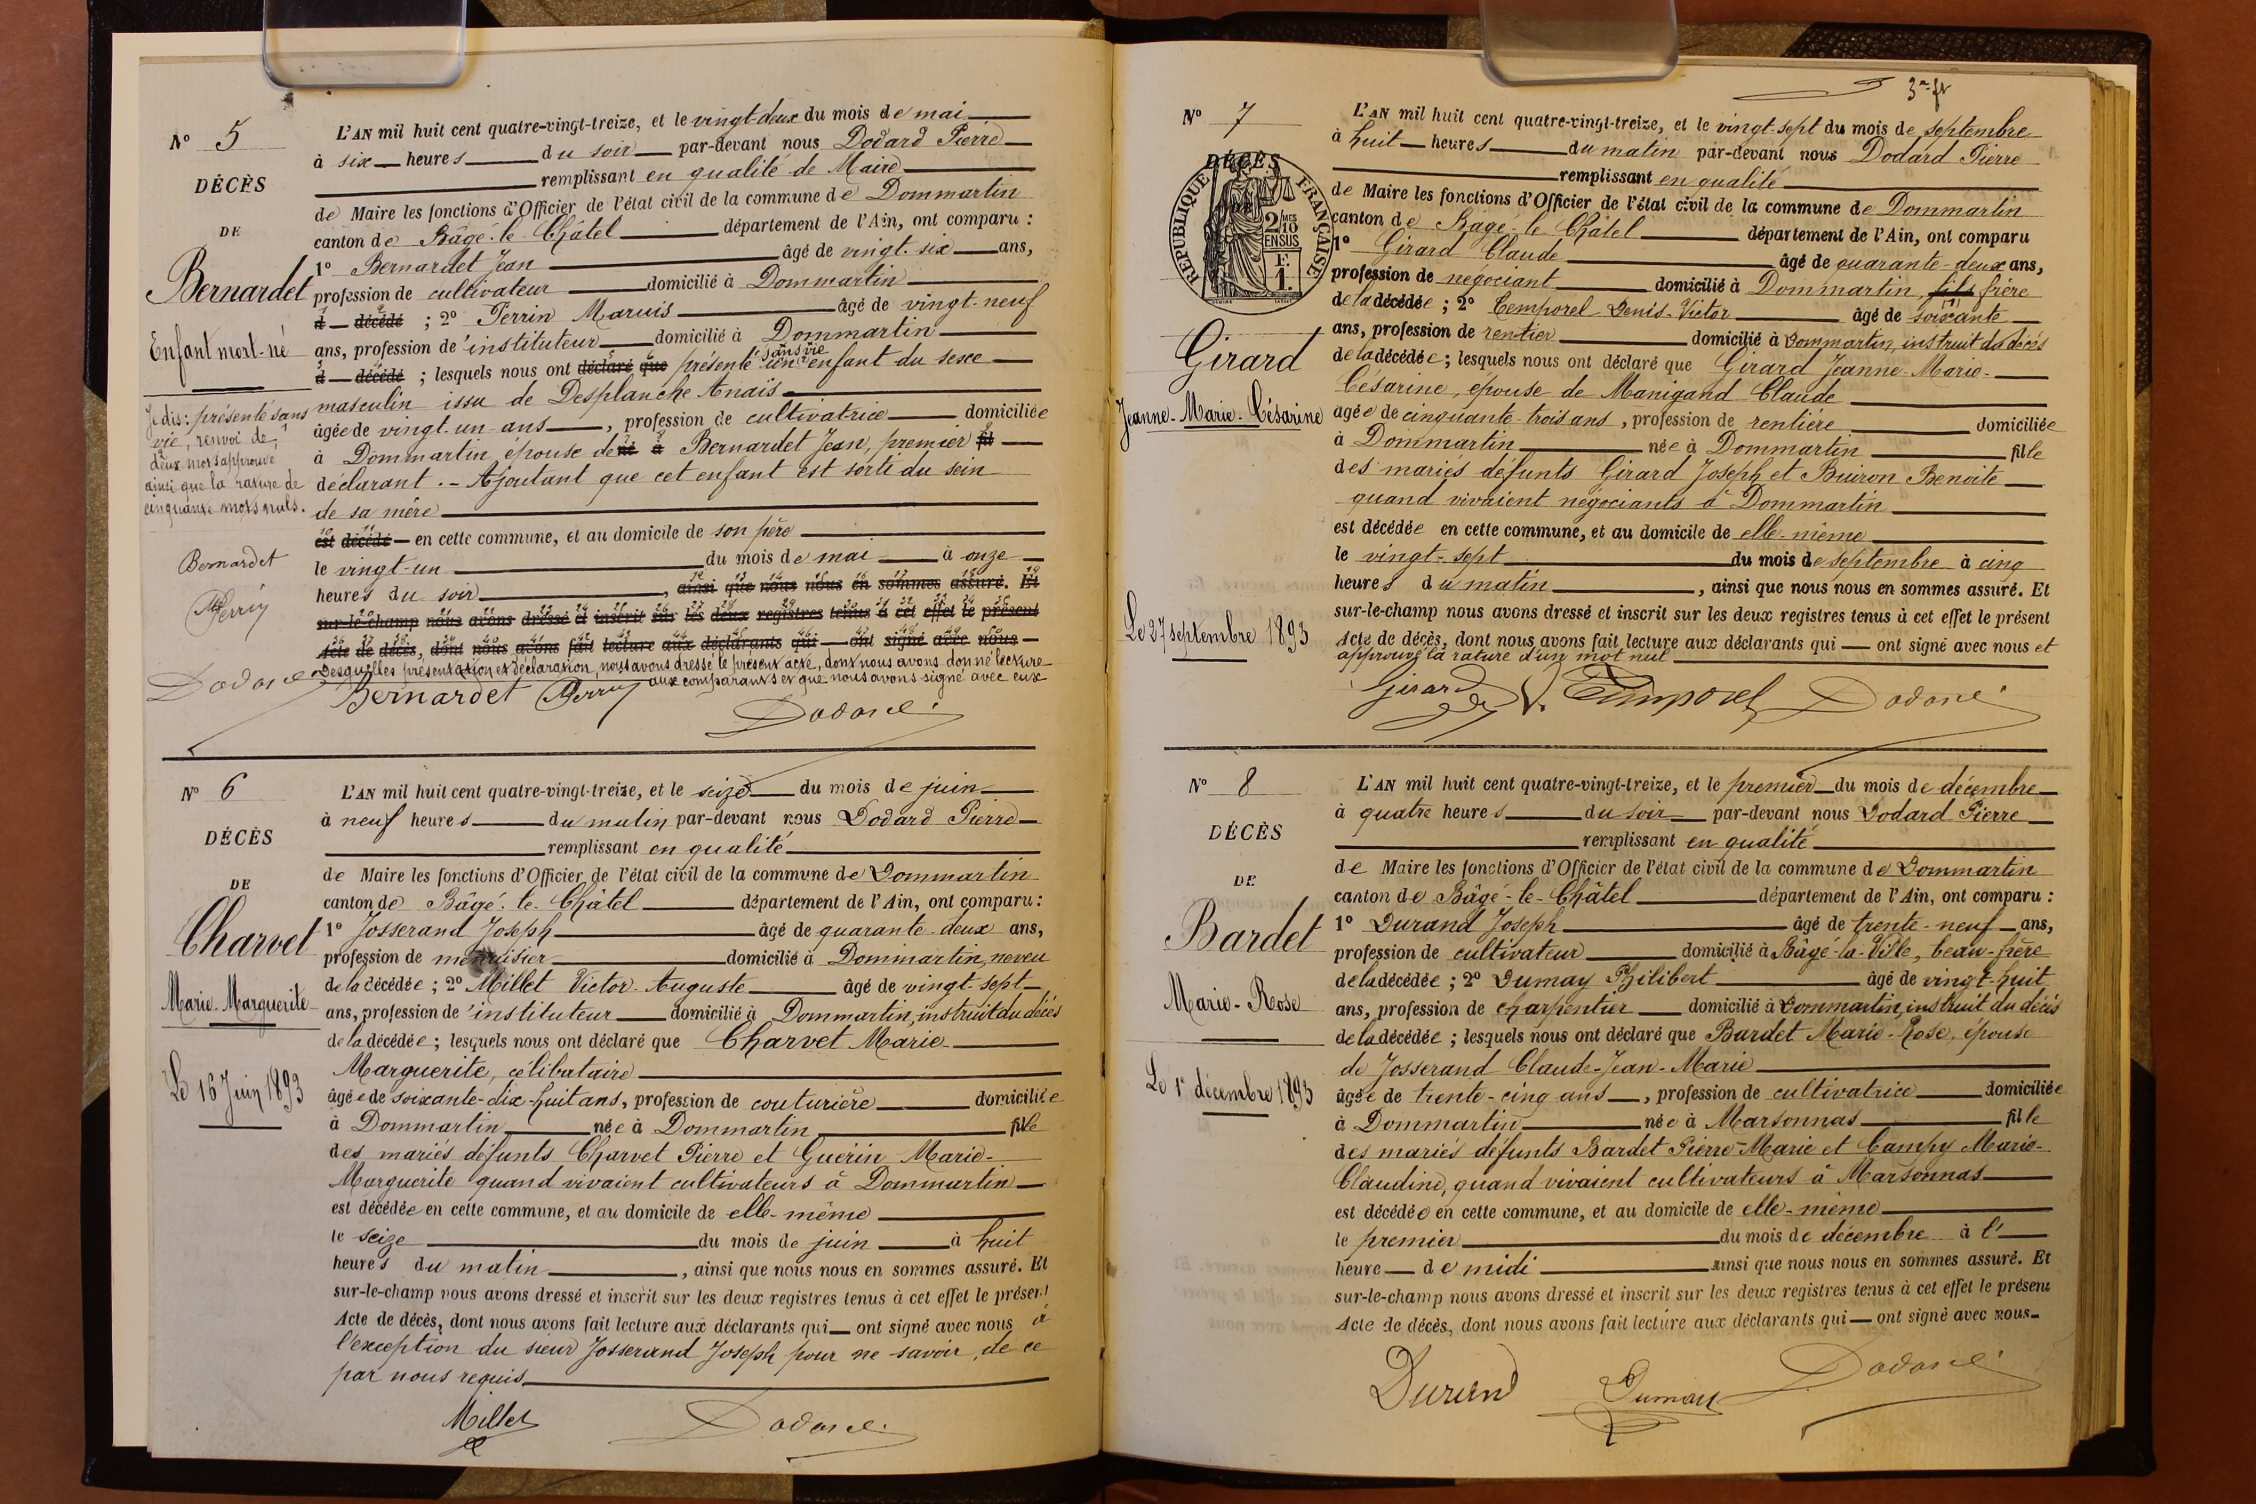 N° 5
DÉCÈS
DE
Bernardet
Enfant mort-né
Je dis: présenté sans
vie, renvoi de
deux mots approuvé
ainsi que la rature de
cinquante mots nuls.
Bernardet
Perrin
Dodard
L'AN mil huit cent quatre-vingt-treize, et le vingt-deux du mois de mai
à six heures du soir par-devant nous Dodard Pierre
remplissant en qualité de Maire
de Maire les fonctions d'Officier de l'état civil de la commune de Dommartin
canton de Bâgé-le-Châtel département de l'Ain, ont comparu :
1° Bernardet Jean âgé de vingt-six ans,
profession de cultivateur domicilié à Dommartin
d décédé ; 2° Perrin Marius âgé de vingt-neuf
ans, profession de instituteur domicilié à Dommartin
d décédé ; lesquels nous ont déclaré que présenté sans vie un enfant du sexe
masculin issu de Desplanche Anaïs
âgée de vingt-un ans, profession de cultivatrice domiciliée
à Dommartin, épouse de né à Bernardet Jean, premier fil
déclarant. - Ajoutant que cet enfant est sorti du sein
de sa mère
est décédé en cette commune, et au domicile de son père
le vingt-un du mois de mai à onze
heures du soir, ainsi que nous nous en sommes assuré. Et
sur-le-champ nous avons dressé et inscrit sur les deux registres tenus à cet effet le présent
Acte de décès, dont nous avons fait lecture aux déclarants qui ont signé avec nous
Desquelles présentation et déclaration, nous avons dressé le présent acte, dont nous avons donné lecture
aux comparants et que nous avons signé avec eux
Bernardet Perrin
Dodard
N° 6
DÉCÈS
DE
Charvet
Marie-Marguerite
Le 16 Juin 1893
L'AN mil huit cent quatre-vingt-treize, et le seize du mois de juin
à neuf heures du matin par-devant nous Dodard Pierre
remplissant en qualité
de Maire les fonctions d'Officier de l'état civil de la commune de Dommartin
canton de Bâgé-le-Châtel département de l'Ain, ont comparu :
1° Josserand Joseph âgé de quarante-deux ans,
profession de menuisier domicilié à Dommartin, neveu
de la décédée ; 2° Millet Victor-Auguste âgé de vingt-sept
ans, profession de instituteur domicilié à Dommartin, instruit du décès
de la décédée ; lesquels nous ont déclaré que Charvet Marie
Marguerite, célibataire
âgée de soixante-dix-huit ans, profession de couturière domiciliée
à Dommartin née à Dommartin fille
des mariés défunts Charvet Pierre et Guérin Marie-
Marguerite quand vivaient cultivateurs à Dommartin
est décédée en cette commune, et au domicile de elle-même
le seize du mois de juin à huit
heures du matin, ainsi que nous nous en sommes assuré. Et
sur-le-champ nous avons dressé et inscrit sur les deux registres tenus à cet effet le présent
Acte de décès, dont nous avons fait lecture aux déclarants qui ont signé avec nous à
l'exception du sieur Josserand Joseph pour ne savoir, de ce
par nous requis
Millet
Dodard
N° 7
DÉCÈS
RÉPUBLIQUE FRANÇAISE
2/10 MES
EN SUS
F.
1.
Girard
Jeanne-Marie-Césarine
Le 27 septembre 1893
L'AN mil huit cent quatre-vingt-treize, et le vingt-sept du mois de septembre
à huit heures du matin par-devant nous Dodard Pierre
remplissant en qualité
de Maire les fonctions d'Officier de l'état civil de la commune de Dommartin
canton de Bâgé-le-Châtel département de l'Ain, ont comparu
1° Girard Claude âgé de quarante-deux ans,
profession de négociant domicilié à Dommartin, fils frère
de la décédée ; 2° Temporel Denis-Victor âgé de soixante
ans, profession de rentier domicilié à Dommartin, instruit du décès
de la décédée ; lesquels nous ont déclaré que Girard Jeanne-Marie-
Césarine, épouse de Manigand Claude
âgée de cinquante-trois ans, profession de rentière domiciliée
à Dommartin née à Dommartin fille
des mariés défunts Girard Joseph et Buiron Benoite
quand vivaient négociants à Dommartin
est décédée en cette commune, et au domicile de elle-même
le vingt-sept du mois de septembre à cinq
heures du matin, ainsi que nous nous en sommes assuré. Et
sur-le-champ nous avons dressé et inscrit sur les deux registres tenus à cet effet le présent
Acte de décès, dont nous avons fait lecture aux déclarants qui ont signé avec nous et
approuvé la rature d'un mot nul
Girard V. Temporel Dodard
N° 8
DÉCÈS
DE
Bardet
Marie-Rose
Le 1er décembre 1893
L'AN mil huit cent quatre-vingt-treize, et le premier du mois de décembre
à quatre heures du soir par-devant nous Dodard Pierre
remplissant en qualité
de Maire les fonctions d'Officier de l'état civil de la commune de Dommartin
canton de Bâgé-le-Châtel département de l'Ain, ont comparu :
1° Durand Joseph âgé de trente-neuf ans,
profession de cultivateur domicilié à Bâgé-la-Ville, beau-frère
de la décédée ; 2° Dumay Philibert âgé de vingt-huit
ans, profession de charpentier domicilié à Dommartin, instruit du décès
de la décédée ; lesquels nous ont déclaré que Bardet Marie-Rose, épouse
de Josserand Claude-Jean-Marie
âgée de trente-cinq ans, profession de cultivatrice domiciliée
à Dommartin née à Marsonnas fille
des mariés défunts Bardet Pierre-Marie et Campy Marie-
Claudine, quand vivaient cultivateurs à Marsonnas
est décédée en cette commune, et au domicile de elle-même
le premier du mois de décembre à l'
heure de midi ainsi que nous nous en sommes assuré. Et
sur-le-champ nous avons dressé et inscrit sur les deux registres tenus à cet effet le présent
Acte de décès, dont nous avons fait lecture aux déclarants qui ont signé avec nous
Durand Dumay Dodard